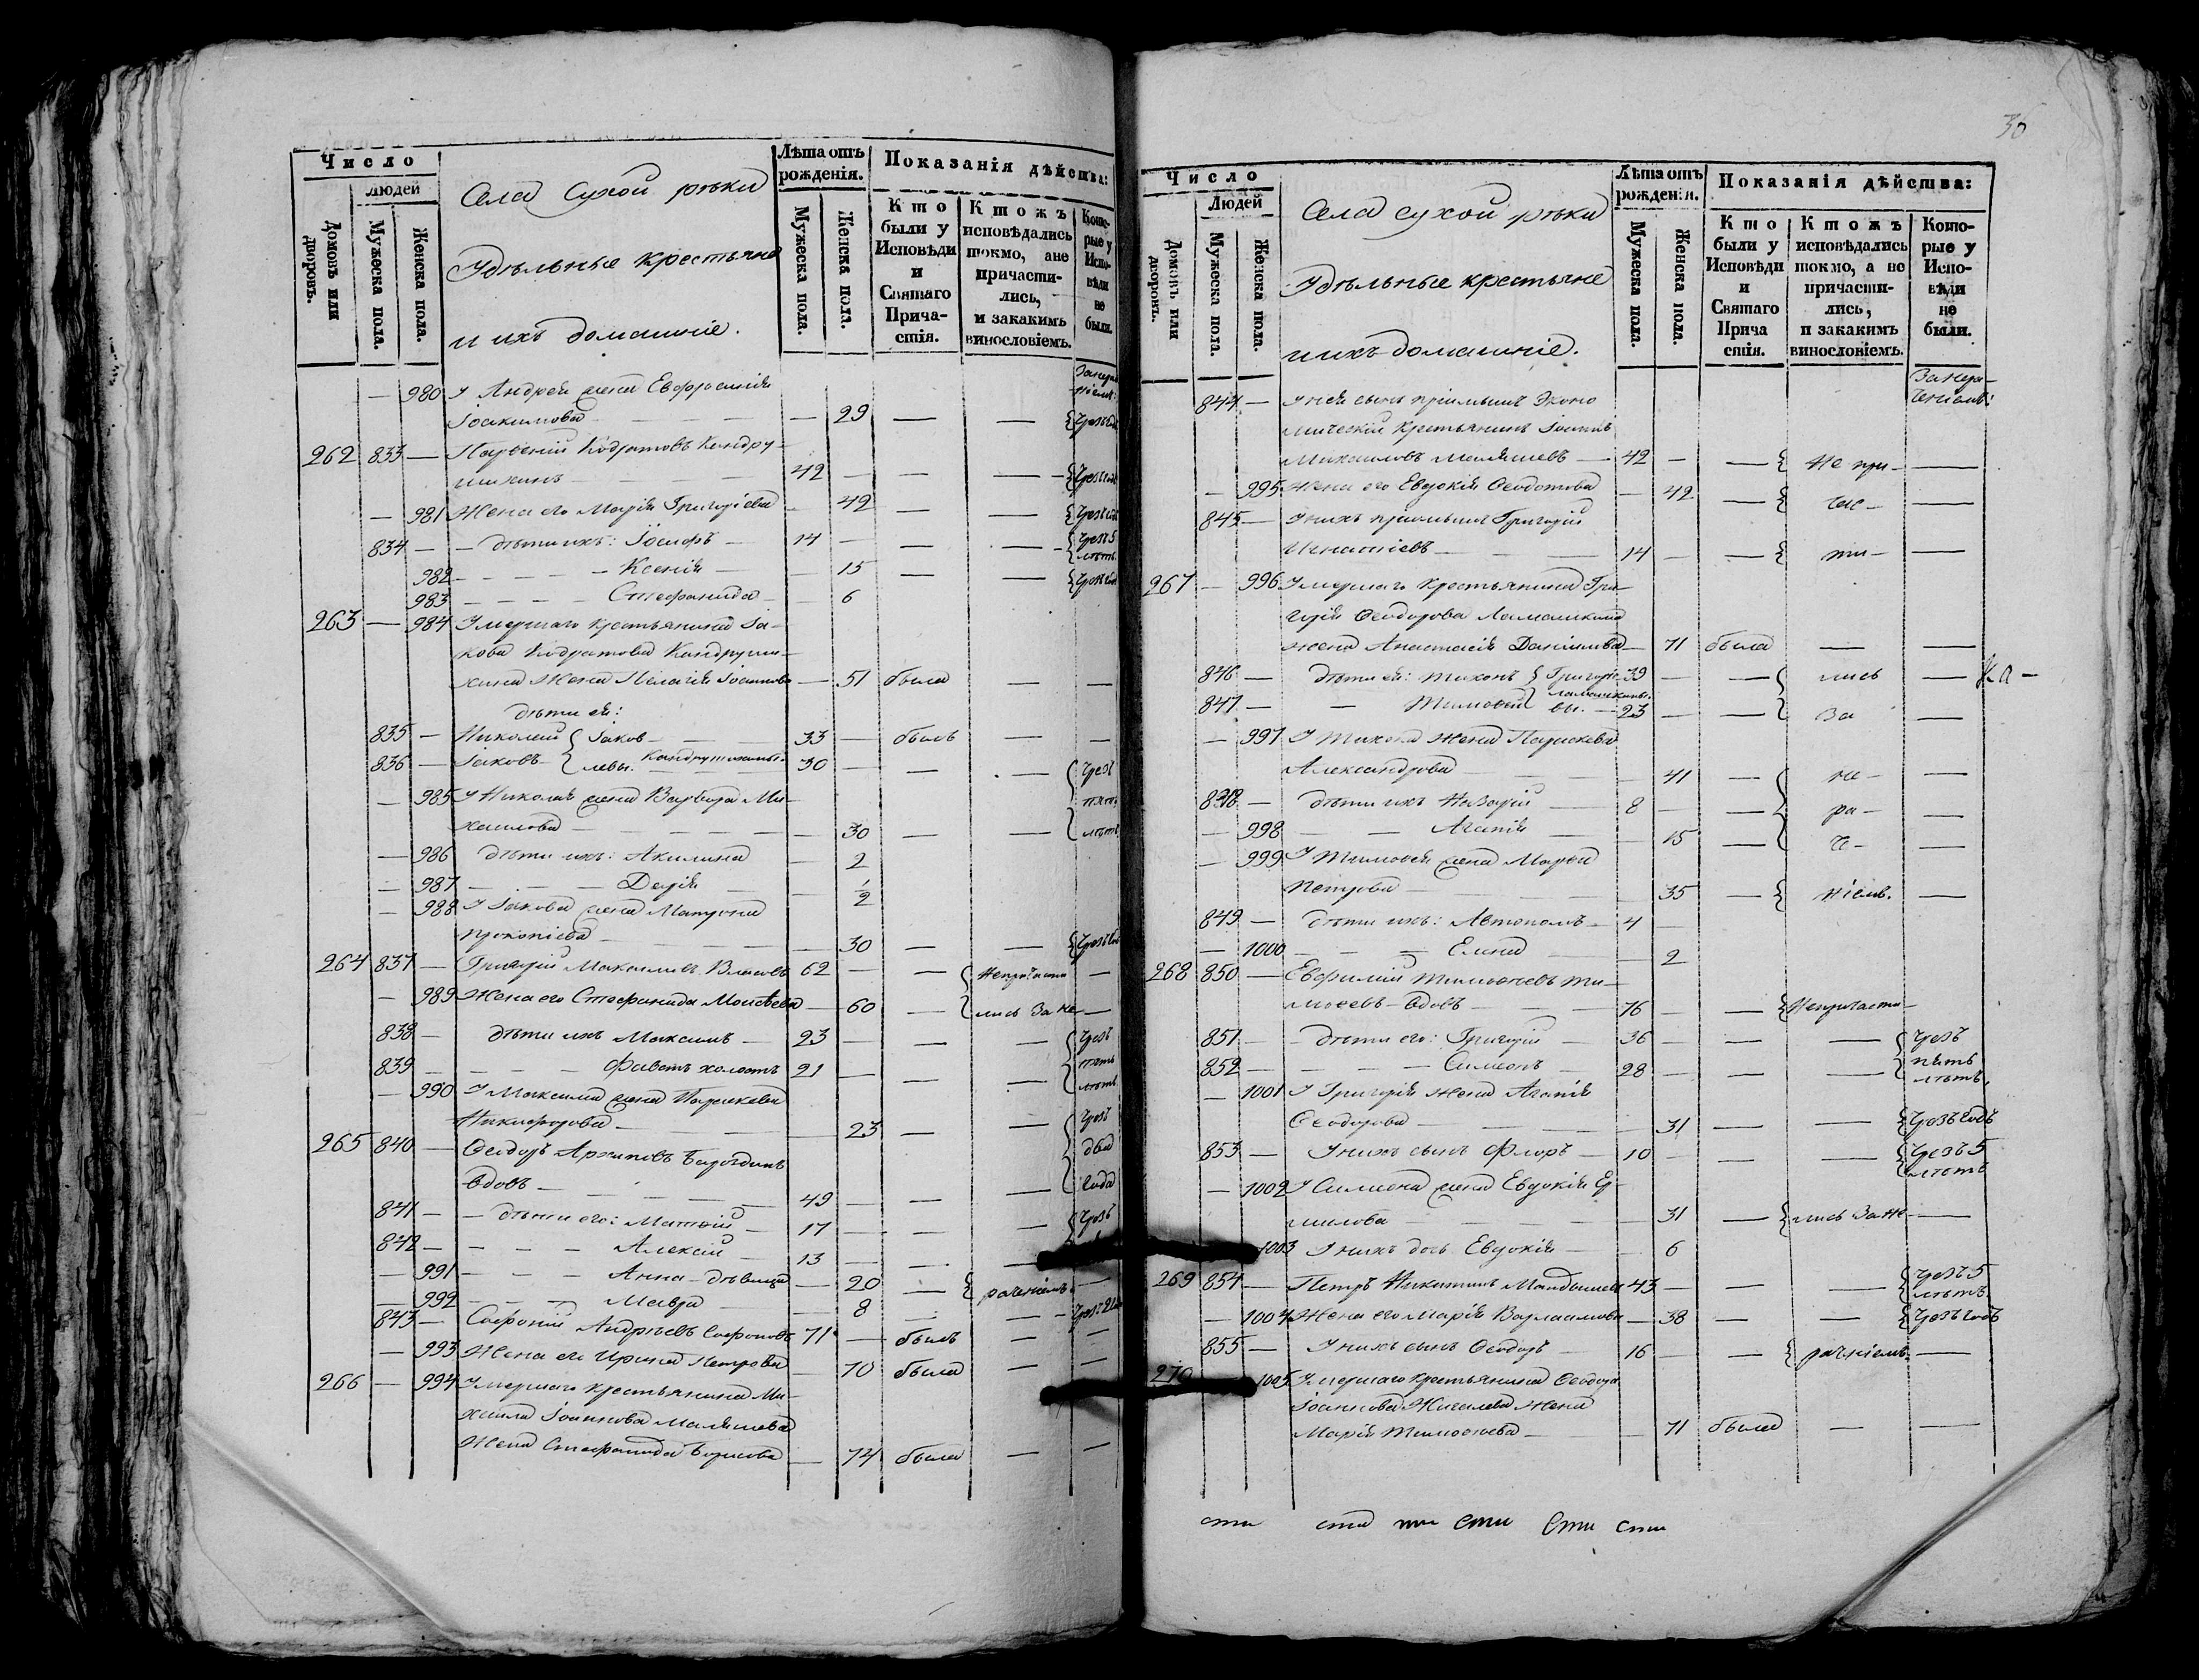 Число
Людей
Домовъ или дворовъ.
Мужеска пола.
Женска пола.
Села Сухой рѣки
Удѣльные крестьяне
и ихъ домашніе.
Лѣта отъ рожденія.
Мужеска пола.
Женска пола.
Показанія дѣйства:
Кто были у Исповѣди и Святаго Причастія.
Ктожъ исповѣдались токмо, ане причастились, и закакимъ винословіемъ.
Которые у Исповѣди не были.
— 980 У Андрея жена Евфросинія
Іоакимова — 29 — —
262 833 — Парѳеній Кодратовъ Кандру-
шихинъ 42 — — —
— 981 Жена его Марія Григоріева — 42 — —
834 — — дѣти ихъ: Іосифъ — 14 — — — Чрезъ 5 лѣтъ
982 — — — — Ксенія — 15 — —
983 — — — — Стефанида — 6
263 — 984 Умершаго крестьянина Іа-
кова Кодратова Кандруши-
хина жена Пелагія Іоаннова — 51 была — —
дѣти ея:
835 — Николай { Іаков- 33 — былъ — —
836 — Іаковъ { левы. Кандрушихины. 30 — — — Чрезъ
— 985 У Николая жена Варвара Ми- пять
хаилова — — 30 — — лѣтъ
— 986 дѣти ихъ: Акилина — 2
— 987 — — — Дарія — ½
— 988 У Іакова жена Матрона
Прокопіева — — 30 — —
264 837 — Григорій Максимовъ Власовъ 62 — — Непричасти —
— 989 Жена его Стефанида Моисѣева — 60 — лись за не- —
838 — дѣти ихъ Максимъ — 23 — — — Чрезъ
839 — — — — Фавстъ холостъ 21 — — — пять лѣтъ
— 990 У Максима жена Параскева
Никифорова — — 23 — — Чрезъ
265 840 — Ѳеодоръ Архиповъ Бароздинъ два
вдовъ — 49 — — — года
841 — — дѣти его: Матѳій — 17 — — — Чрезъ
842 — — — — Алексій 13 — — —
— 991 — — — Анна — дѣвица — 20 — рачніемъ —
— 992 — — — Мавра — 8 — —
843 — Софроній Андрѣевъ Софроновъ 71 — былъ — —
— 993 Жена его Ирина Петрова — 70 была — —
266 — 994 Умершаго крестьянина Ми-
хаила Іоаннова Малышева
Жена Стефанида Борисова — 74 была — —
36
Число
Людей
Домовъ или дворовъ.
Мужеска пола.
Женска пола.
Села сухой рѣки
Удѣльные крестьяне
и ихъ домашніе.
Лѣта отъ рожденія.
Мужеска пола.
Женска пола.
Показанія дѣйства:
Кто были у Исповѣди и Святаго Прича стія.
Ктожъ исповѣдались токмо, а не причастились, и закакимъ винословіемъ.
Которые у Исповѣди не были.
844 — У нея сынъ пріимышъ Эконо
мическій крестьянинъ Іоаннъ
Михаиловъ Малышевъ — 42 — — Не при- —
— 995 Жена его Евдокія Ѳеодотова — 42 — час- —
845 — У нихъ пріимышъ Григорій
Игнатіевъ — 14 — — ти- —
267 — 996 Умершаго крестьянина Гри-
горія Ѳеодорова Ламашкина
жена Анастасія Даніилова — 71 была — —
846 — дѣти ея: Тихонъ { Григорь- 39 — — лись —
Ка-
847 — — Тимоѳей { вы. Ламашкины. 23 — — за —
— 997 У Тихона жена Параскева
Александрова — — 41 — не- —
848 — дѣти ихъ Назарій — 8 — — ра- —
— 998 — — Агапія — — 15 — че- —
— 999 У Тимоѳея жена Марѳа
Петрова — — 35 — ніемъ. —
849 — дѣти ихъ: Автономъ — 4 —
— 1000 — — — Елена — — 2
268 850 — Евфимій Тимоѳѣевъ Ти-
моѳеевъ — вдовъ — 76 — — Непричасти- —
851 — — дѣти его: Григорій — 36 — — — Чрезъ
852 — — — — Симеонъ — 28 — — — пять лѣтъ.
— 1001 У Григорія жена Агапія
Ѳеодорова — — 31 — — Чрезъ годъ
853 — У нихъ сынъ Флоръ — 10 — — — Чрезъ 5 лѣтъ
— 1002 У Симеона жена Евдокія Ер-
милова — — 31 — лись за не- —
1003 У нихъ дочь Евдокія — — 6
269 854 — Петръ Никитинъ 43 — — — Чрезъ 5 лѣтъ.
— 1004 Жена его Марія Варлаамова — 38 — — Чрезъ годъ
855 — У нихъ сынъ Ѳеодоръ — 16 — — рачніемъ. —
270 1005 Умершаго крестьянина Ѳеодора
Іоаннова Жигалева жена
Марія Тимоѳѣева — — 71 была — —
сти сти ти сти сти сти